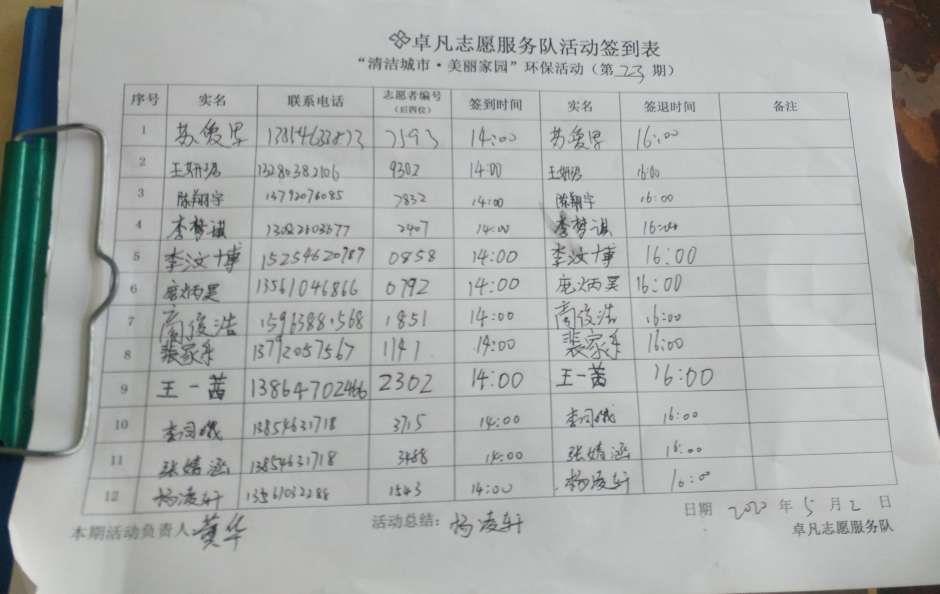 卓凡志愿服务队活动签到表
“清洁城市·美丽家园”环保活动（第 23 期）
序号 实名 联系电话 志愿者编号（后四位） 签到时间 实名 签退时间 备注
1 苏爱思 7593 14:00 苏爱思 16:00
2 王妍珺 13280382106 9302 14:00 王妍珺 16:00
3 陈翔宇 13792076085 2832 14:00 陈翔宇 16:00
4 李梦谌 2407 14:00 李梦谌 16:00
5 李汶博 15254620787 0858 14:00 李汶博 16:00
6 庞炳昊 13561046866 0792 14:00 庞炳昊 16:00
7 商俊浩 1851 14:00 商俊浩 16:00
8 裴家乐 13792057567 1141 14:00 裴家乐 16:00
9 王一茜 2302 14:00 王一茜 16:00
10 13854631718 3715 14:00 16:00
11 张婧涵 13854631718 3488 14:00 张婧涵 16:00
12 杨凌轩 13561032288 1543 14:00 杨凌轩 16:00
日期 2020 年 5 月 2 日
本期活动负责人 黄华 活动总结：杨凌轩 卓凡志愿服务队